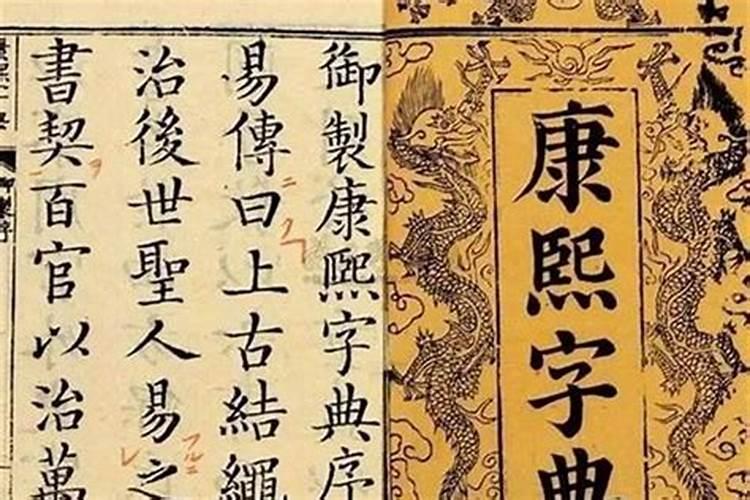 康熙字典
御製康熙字典序
易傳曰上古結繩
治後世聖人易之
書契百官以治萬